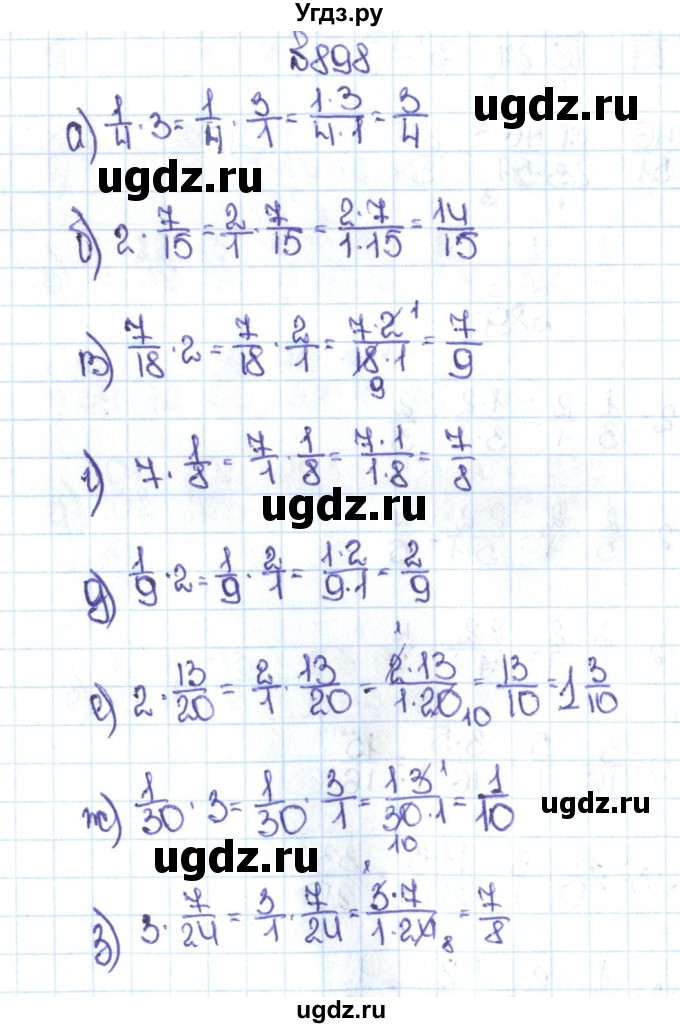 Угдз.ру
№898
ugdz.ru
а) 1/4 · 3 = 1/4 · 3/1 = 1·3/4·1 = 3/4
ugdz.ru
б) 2 · 7/15 = 2/1 · 7/15 = 2·7/1·15 = 14/15
в) 7/18 · 2 = 7/18 · 2/1 = 7·2 1/18·1 9 = 7/9
г) 7 · 1/8 = 7/1 · 1/8 = 7·1/1·8 = 7/8
ugdz.ru
д) 1/9 · 2 = 1/9 · 2/1 = 1·2/9·1 = 2/9
е) 2 · 13/20 = 2/1 · 13/20 = 1 2·13/1·20 10 = 13/10 = 1 3/10
ж) 1/30 · 3 = 1/30 · 3/1 = 1·3 1/30·1 10 = 1/10
ugdz.ru
ugdz.ru
з) 3 · 7/24 = 3/1 · 7/24 = 1 3·7/1·24 8 = 7/8
ugdz.ru